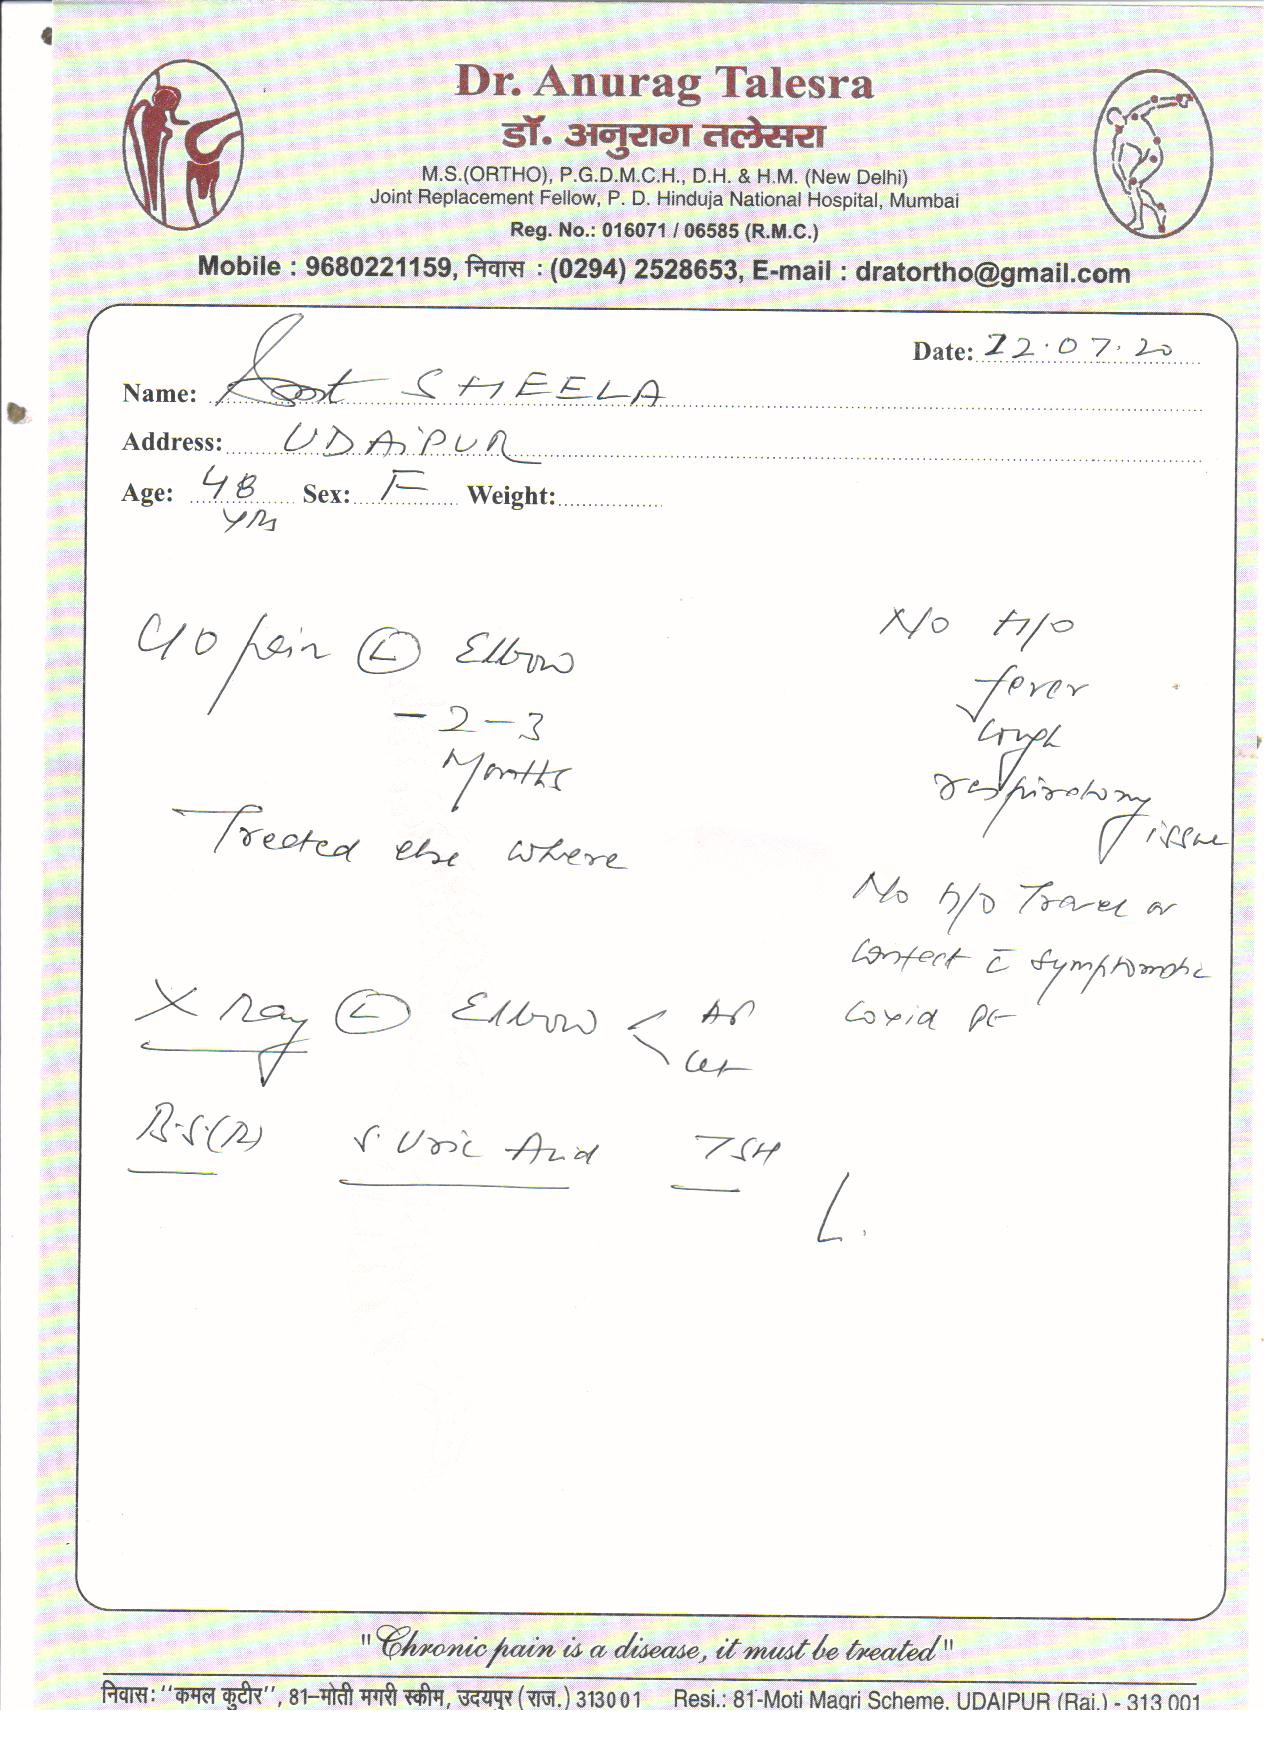 Dr. Anurag Talesra
डॉ. अनुराग तलेसरा
M.S.(ORTHO), P.G.D.M.C.H., D.H. & H.M. (New Delhi)
Joint Replacement Fellow, P. D. Hinduja National Hospital, Mumbai
Reg. No.: 016071 / 06585 (R.M.C.)
Mobile : 9680221159, निवास : (0294) 2528653, E-mail : dratortho@gmail.com
Date: 22.07.20
Name: SHEELA
Address: UDAIPUR
Age: 48 yrs Sex: F Weight:
C/O pain (L) Elbow
- 2 - 3
Months
Treated else where
N/o H/o
fever
cough
respiratory
issue
No h/o Travel or
contact c̄ symptomatic
covid pt
X Ray (L) Elbow < AP
Lat
B.S.(R) S. Uric Acid TSH
"Chronic pain is a disease, it must be treated"
निवास: "कमल कुटीर", 81-मोती मगरी स्कीम, उदयपुर (राज.) 313001 Resi.: 81-Moti Magri Scheme, UDAIPUR (Raj.) - 313 001